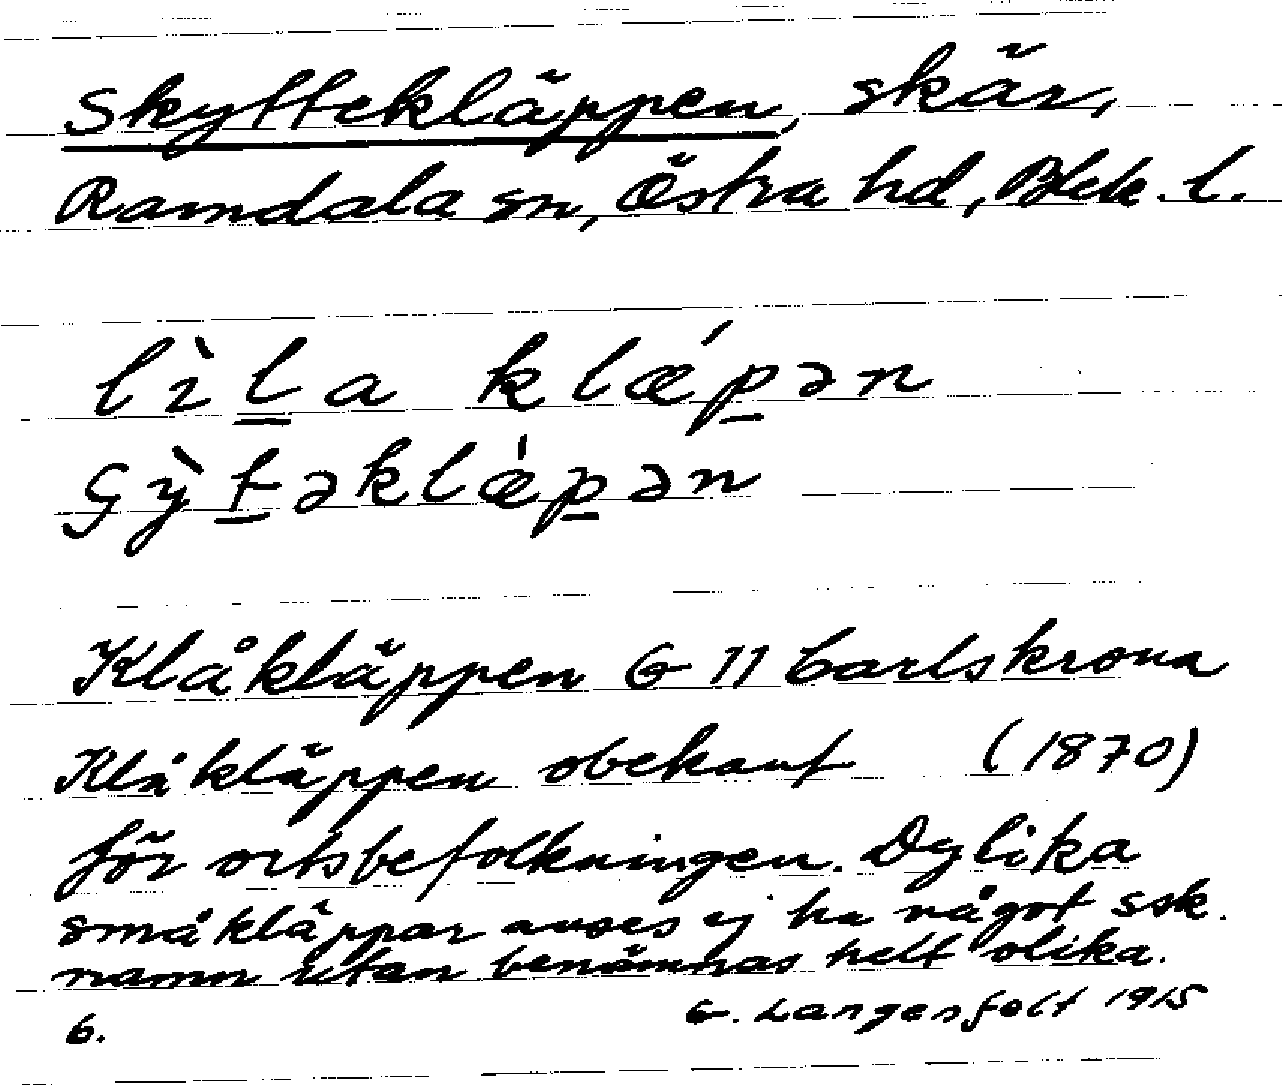 Skyttekläppen, skär,
Ramdala sn, Östra hd, Blek. l.
lìla klǽpən
ςỳtəklǽpən
Klåkläppen G 11 Carlskrona
Klåkläppen obekant (1870)
för ortsbefolkningen. Dylika
småkläppar anses ej ha något ssk.
namn utan benämnas helt olika.
6. G. Langenfelt 1915